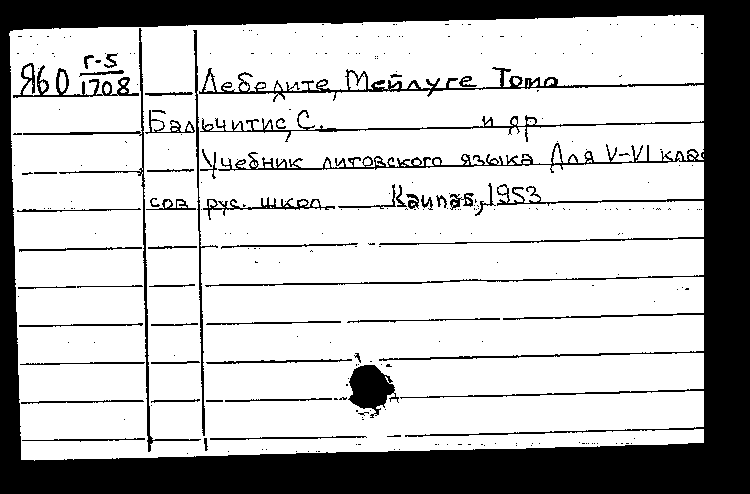 Я60 Г-5
1708
Лебедите, Мейлуге Томо
Бальчитис, С. и др
Учебник литовского языка Для V-VI клас
сов рус. школ. Каунас, 1953